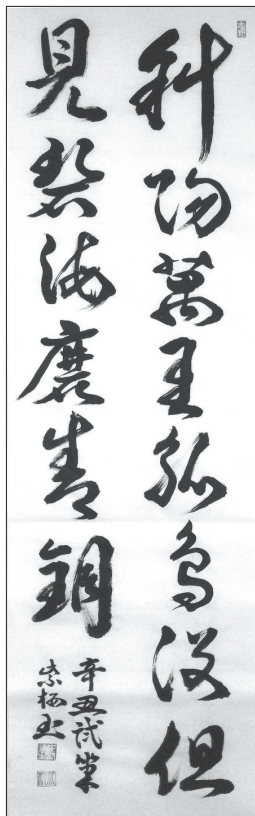 斜陽萬里孤鳥没但
見碧海磨青銅
辛丑試筆
書